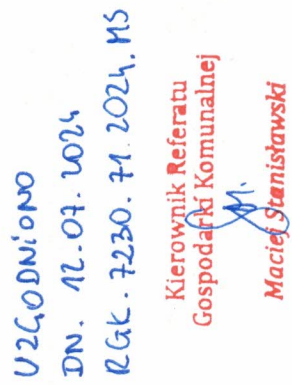 UZGODNIONO
DN. 12.07.2024
RGK. 7230.71.2024.MS
Kierownik Referatu
Gospodarki Komunalnej
Maciej Stanisławski